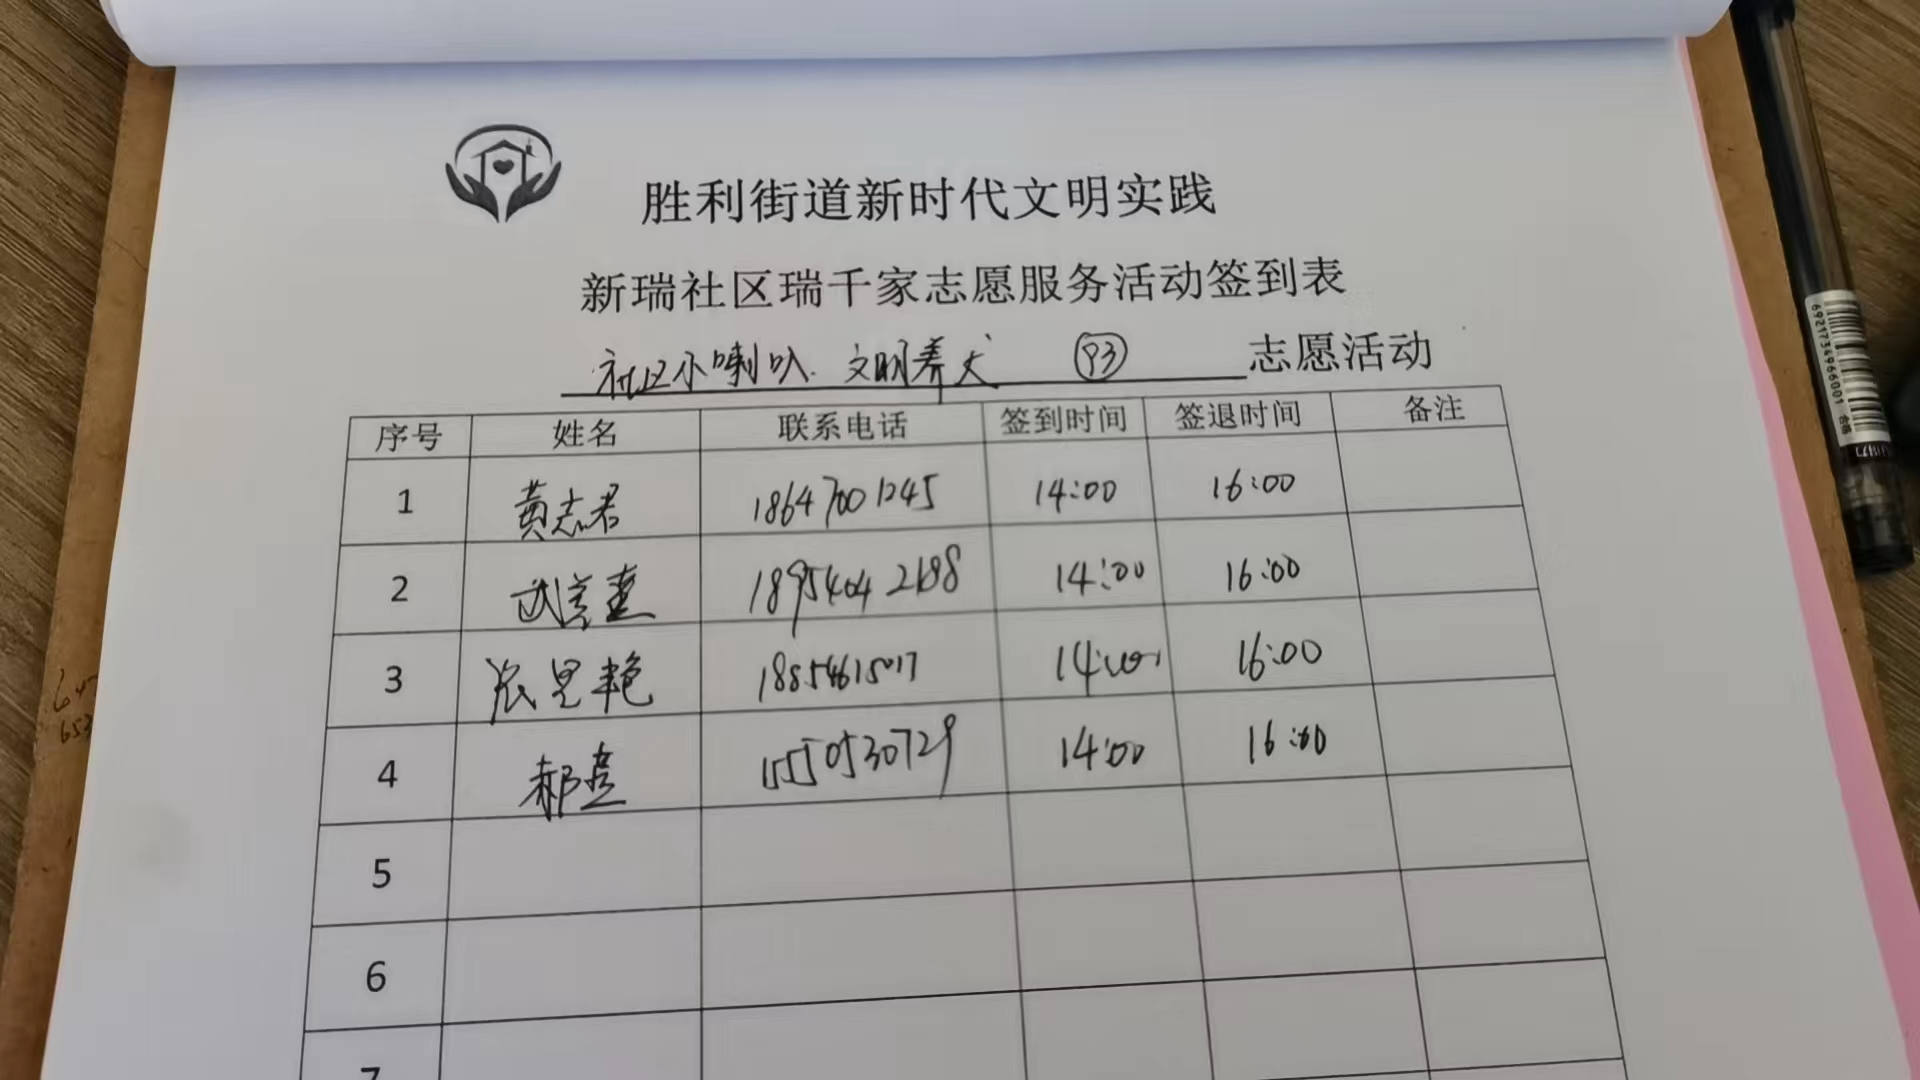 胜利街道新时代文明实践
新瑞社区瑞千家志愿服务活动签到表
社区小喇叭.文明养犬 93 志愿活动
序号 姓名 联系电话 签到时间 签退时间 备注
1 黄志君 18647001245 14:00 16:00
2 18954042188 14:00 16:00
3 18854615017 14:00 16:00
4 郝 1550530729 14:00 16:00
5
6
7
6921734966001